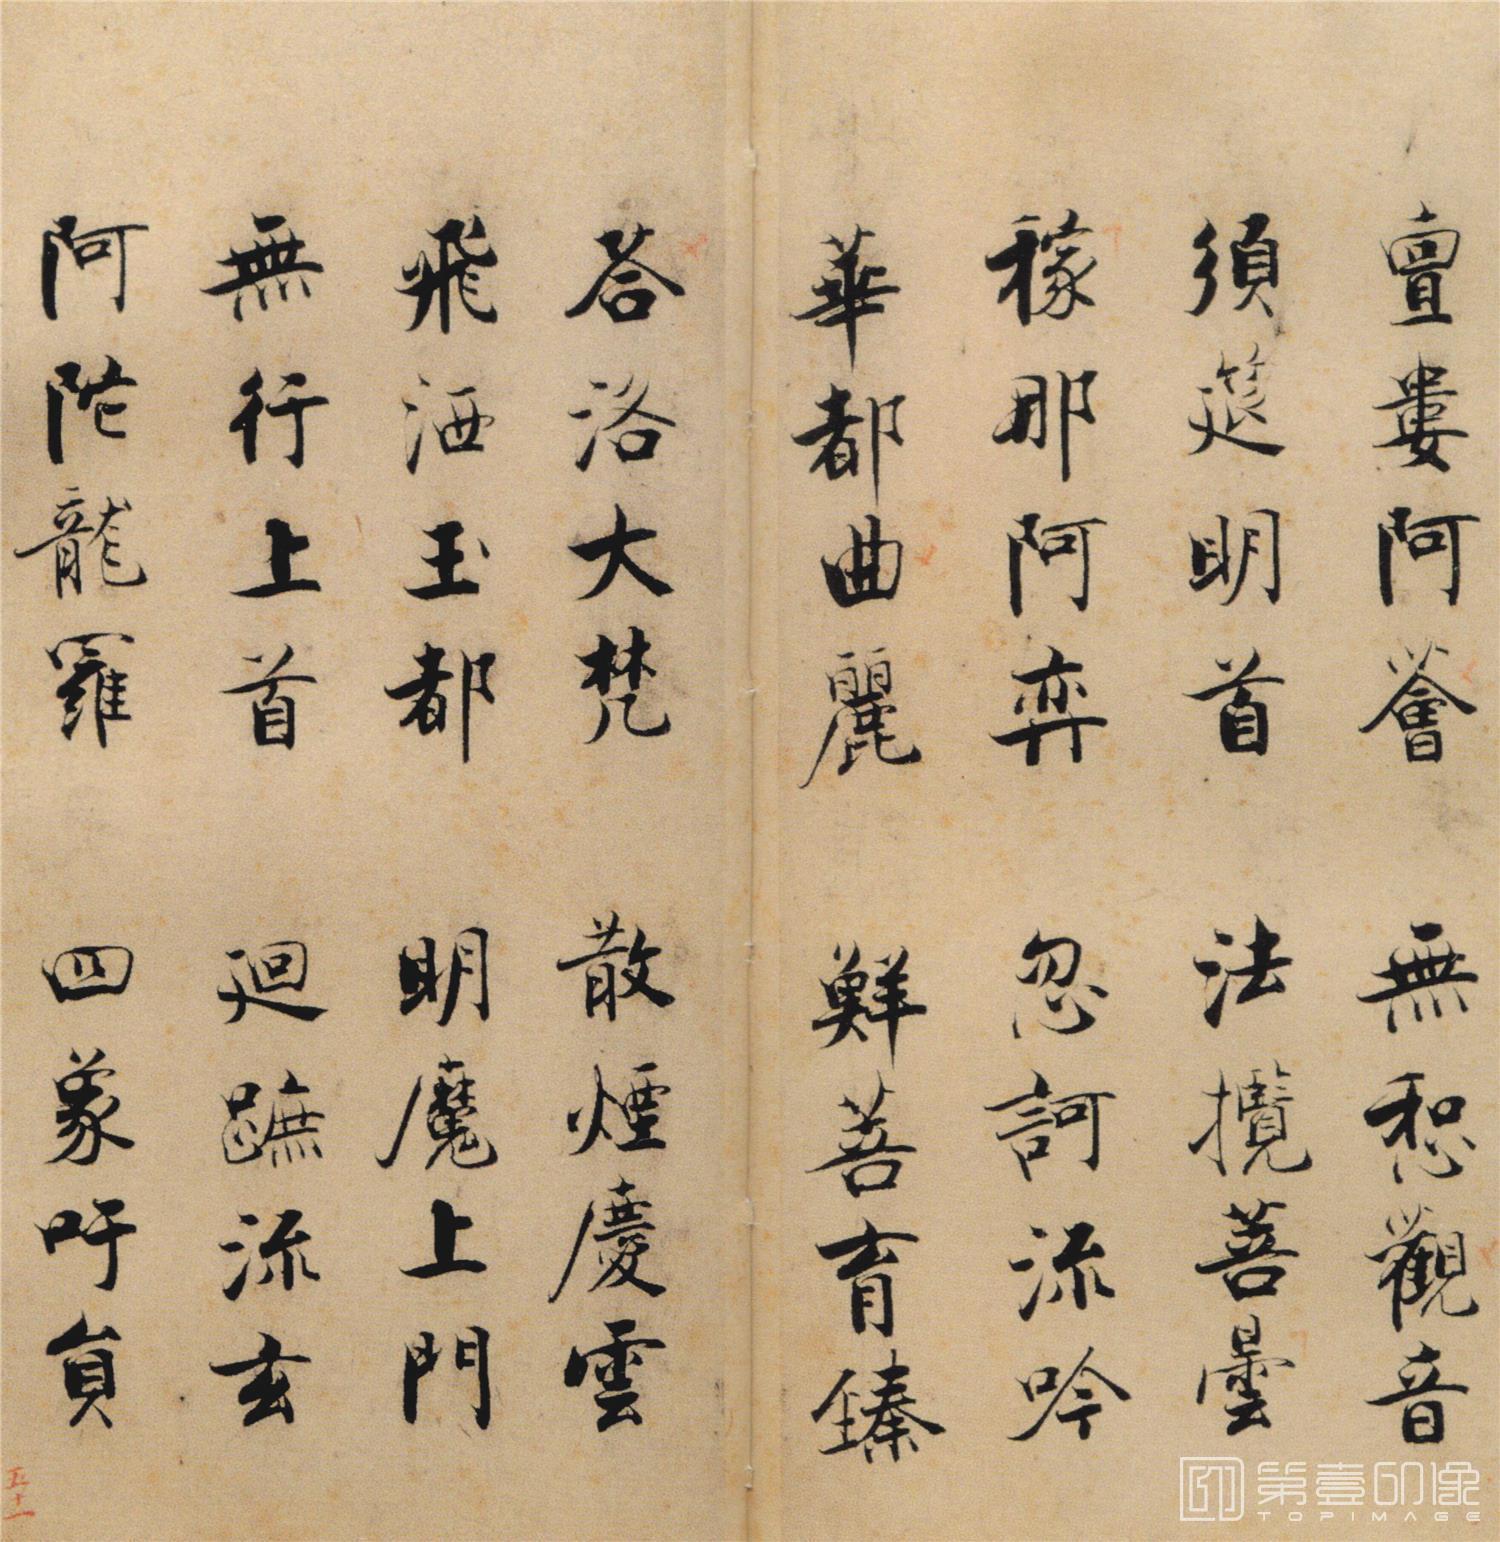 亶婁阿薈 無惒觀音
須筵明首 法攬菩曇
稼那阿弈 忽訶流吟
華都曲麗 鮮菩育臻
荅洛大梵 散煙慶雲
飛洒玉都 明魔上門
無行上首 廻蹠流玄
阿陁龍羅 四象吁貟
五十一
第壹印像
TOPIMAGE